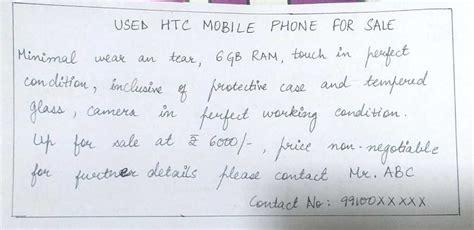 USED HTC MOBILE PHONE FOR SALE
Minimal wear an tear, 6 GB RAM, touch in perfect
condition, inclusive of protective case and tempered
glass, camera in perfect working condition.
Up for sale at ₹ 6000/-, price non-negotiable
for further details please contact Mr. ABC
Contact No: 99100XXXXX